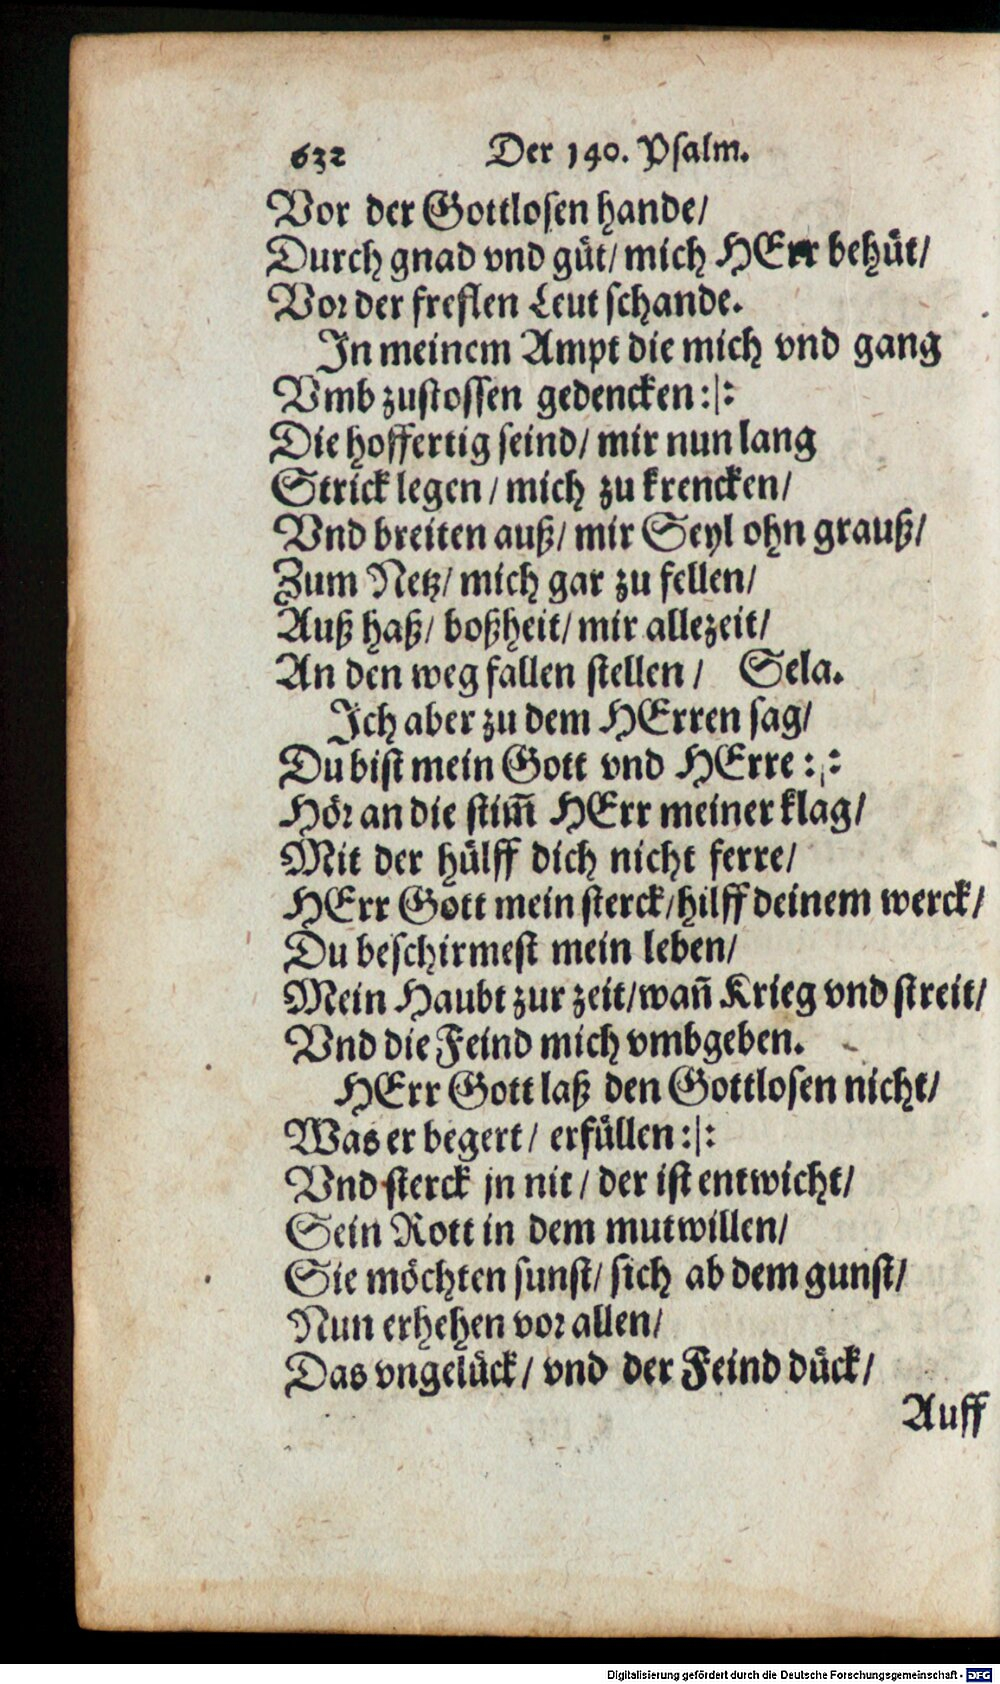 632 Der 140. Psalm.
Vor der Gottlosen hande/
Durch gnad vnd güt/ mich HErr behüt/
Vor der freflen Leut schande.
In meinem Ampt die mich vnd gang
Vmb zustossen gedencken:|:
Die hoffertig seind/ mir nun lang
Strick legen/ mich zu krencken/
Vnd breiten auß/ mir Seyl ohn grauß/
Zum Netz/ mich gar zu fellen/
Auß haß/ boßheit/ mir allezeit/
An den weg fallen stellen/ Sela.
Ich aber zu dem HErren sag/
Du bist mein Gott vnd HErre:|:
Hör an die stim̃ HErr meiner klag/
Mit der hülff dich nicht ferre/
HErr Gott mein sterck/hilff deinem werck/
Du beschirmest mein leben/
Mein Haubt zur zeit/wañ Krieg vnd streit/
Vnd die Feind mich vmbgeben.
HErr Gott laß den Gottlosen nicht/
Was er begert/ erfüllen:|:
Vnd sterck jn nit/ der ist entwicht/
Sein Rott in dem mutwillen/
Sie möchten sunst/ sich ab dem gunst/
Nun erhehen vor allen/
Das vngelück/ vnd der Feind dück/
Auff
Digitalisierung gefördert durch die Deutsche Forschungsgemeinschaft - DFG